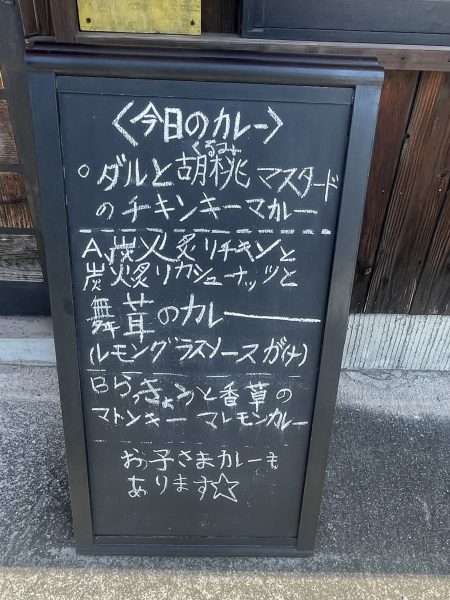 〈今日のカレー〉
くるみ
○ダルと胡桃マスタード
のチキンキーマカレー
A、炭火炙リチキンと
炭火炙リカシューナッツと
舞茸のカレー
(ルモングラスソースが付)
Bらっきょうと香草の
マトンキーマレモンカレー
お子さまカレーも
あります☆